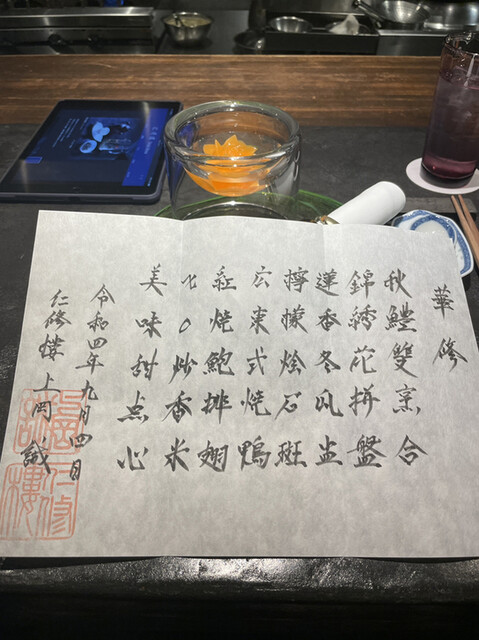 華修
秋鱧雙烹合
錦綉花拼盤
蓮香冬瓜盅
檸檬烩石斑
広東式焼鴨
紅焼鮑排翅
XO炒香米
美味甜点心
令和四年九月四日
仁修樓上岡誠